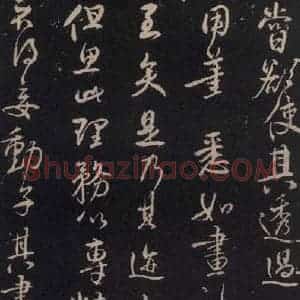 嘗欲使其透過
用筆悉如畫
至矣是乃其迹
但思此理務以專
得妄動子其書